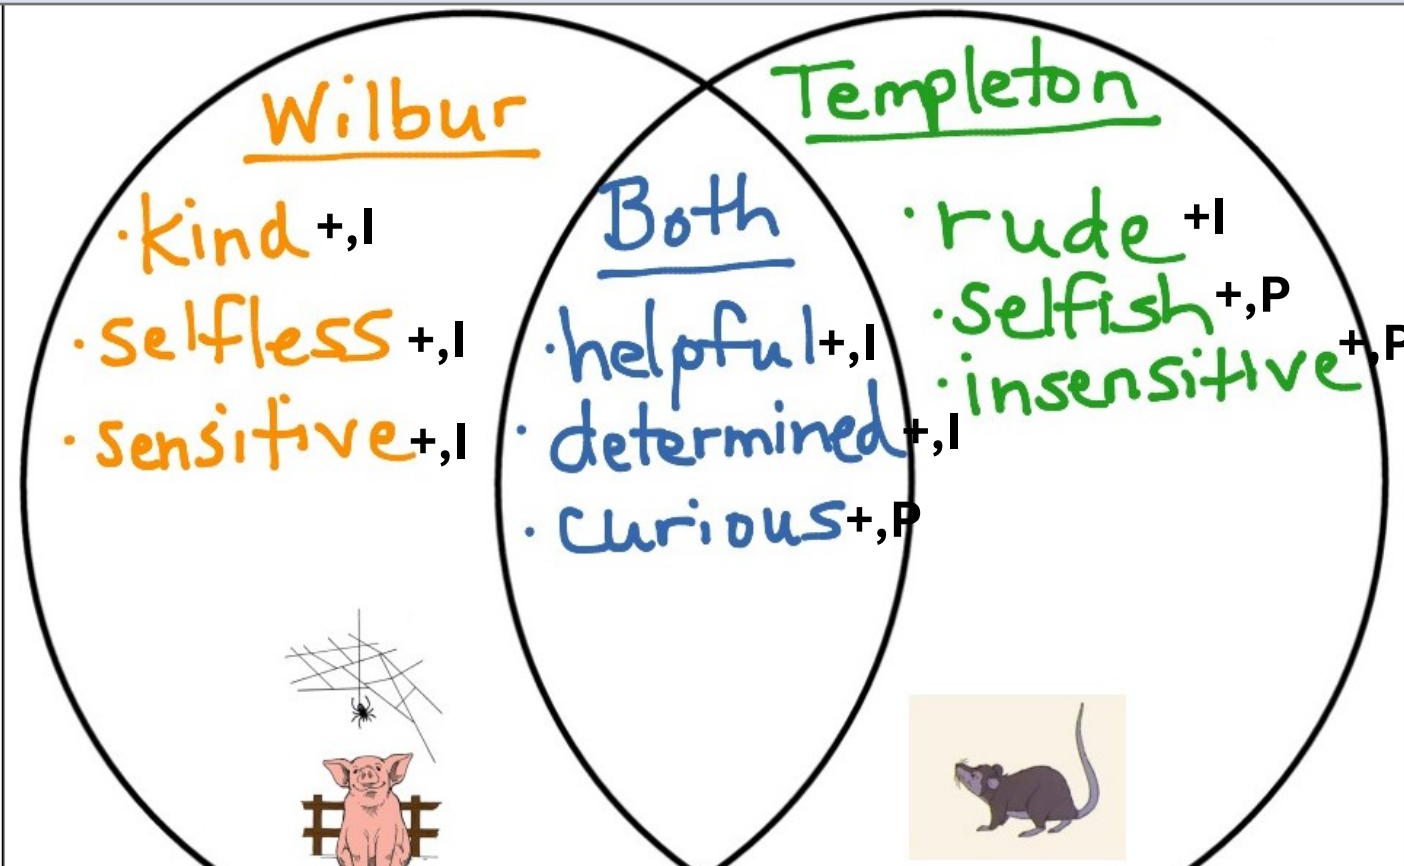 Wilbur
· kind +,I
· selfless +,I
· sensitive +,I
Both
· helpful +,I
· determined +,I
· curious +,P
Templeton
· rude +I
· selfish +,P
· insensitive +,P